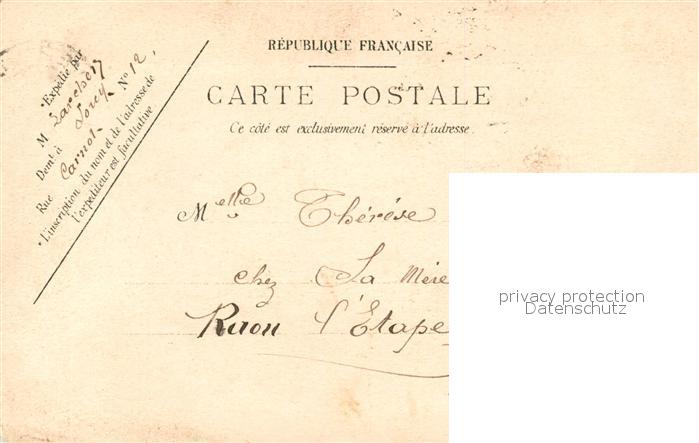 RÉPUBLIQUE FRANÇAISE
CARTE POSTALE
Ce côté est exclusivement réservé à l'adresse.
Expédié par
M
Demt à
Rue Carnot N° 12,
L'inscription du nom et de l'adresse de
l'expéditeur est facultative
Melle Thérèse
chez La Mère
Raon l'Etape
privacy protection
Datenschutz